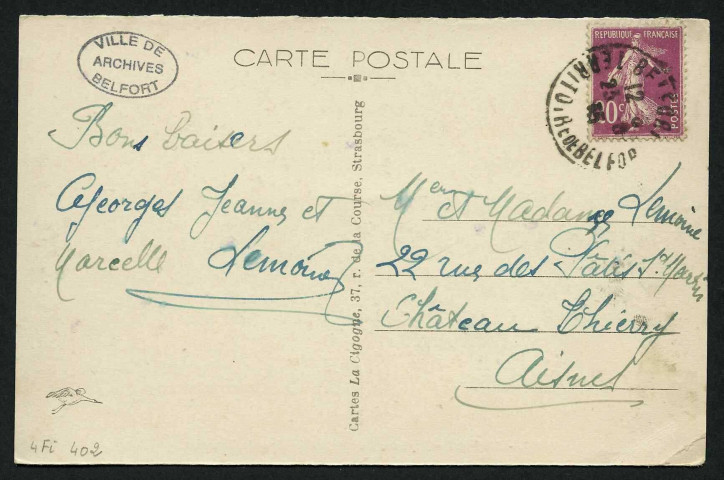 VILLE DE
ARCHIVES
BELFORT
CARTE POSTALE
REPUBLIQUE FRANÇAISE
POSTES
TERRITOIRE DE BELFOR
Bons baisers
Georges Jeanne et
Marcelle Lemoine
Cartes La Cigogne, 37, r. de la Course, Strasbourg
Mer et Madame Lemoine
22 rue des
Château Thierry
Aisne
4Fi 402